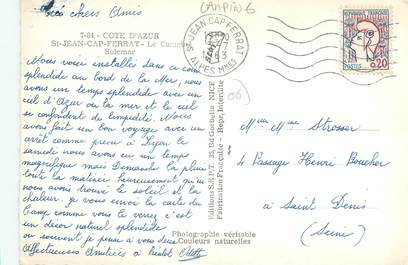 CAMPING
Très chers Amis
7-84 - COTE D'AZUR
St-JEAN-CAP-FERRAT - Le Camping
Solemar
Nous voici installés dans ce coin
splendide au bord de la Mer, nous
avons un temps splendide avec un
ciel d'Azur où la mer et le ciel
se confondent de limpidité. Nous
avons fait un bon voyage avec un
arrêt comme prévu à Lyon le
samedi nous avons eu un temps
magnifique mais Demanche la pluie
toute la matinée heureusement qu'ici
nous avons trouvé le soleil et la
chaleur. je vous envoi la carte du
Camp comme vous le verrez c'est
un décor naturel splendide
je pense à vous deux
Affectueuses Amitiées à
Odette
Photographie véritable
Couleurs naturelles
Editions S.E.P.T. Bd Gorbella NICE
Fabrication Française - Repr. Interdite
ST JEAN CAP FERRAT
ALPES MMES
REPUBLIQUE FRANCAISE
POSTES
0,20
(06)
Mme Strosser
4 Passage Henri Boucher
à Saint Denis
(Seine)